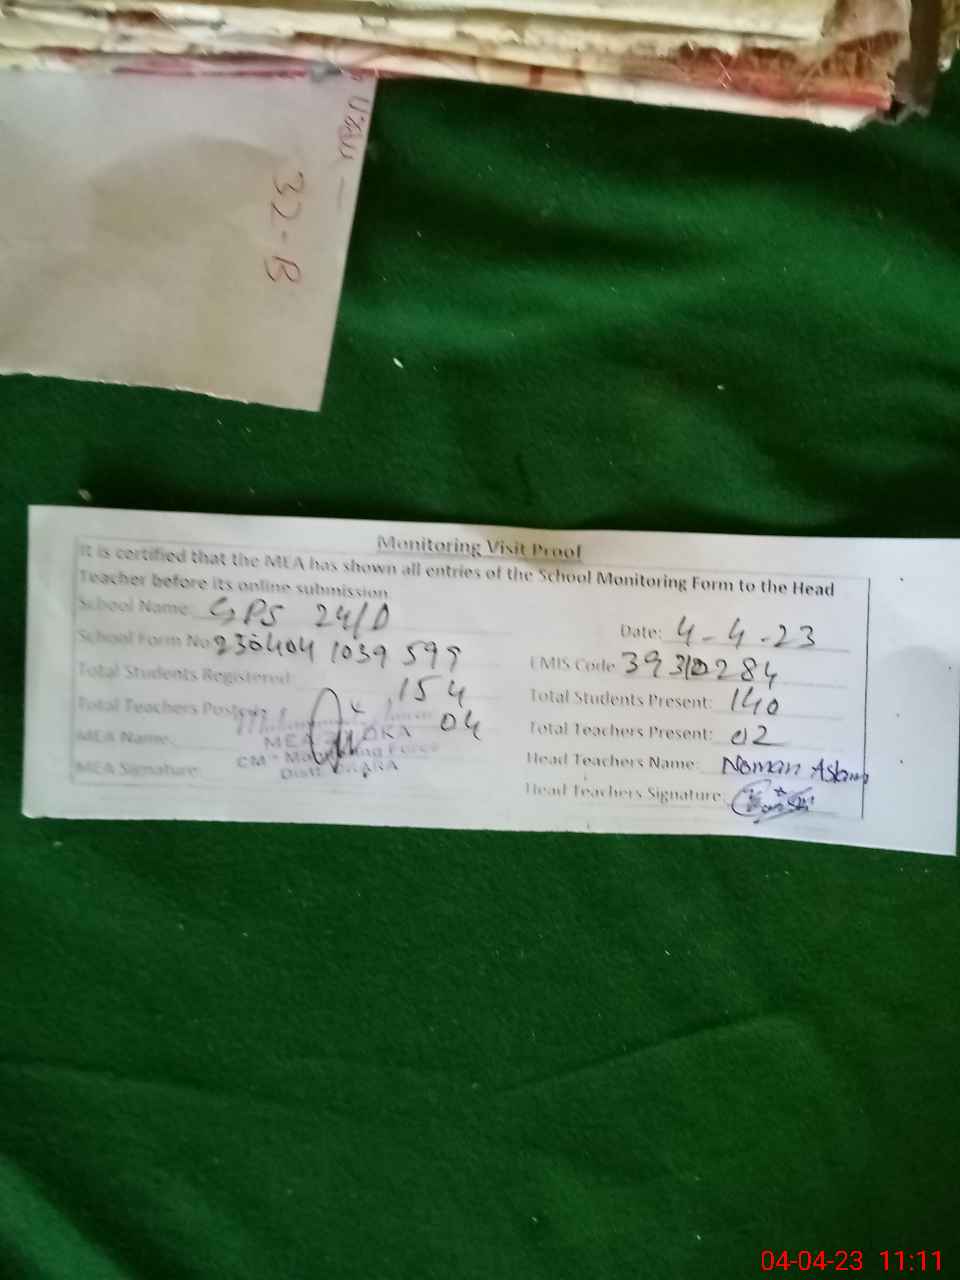 32-B
Monitoring Visit Proof
It is certified that the MEA has shown all entries of the School Monitoring Form to the Head
Teacher before its online submission
School Name: GPS 24/D
Date: 4-4-23
School Form No 230404 1039 599
EMIS Code 39310284
Total Students Registered: 154
Total Students Present: 140
Total Teachers Posted: 04
Total Teachers Present: 02
MEA Name:
MEA OKARA
Head Teachers Name: Noman Aslam
CM - Monitoring Force
MEA Signature
Distt. OKARA
Head Teachers Signature:
04-04-23 11:11